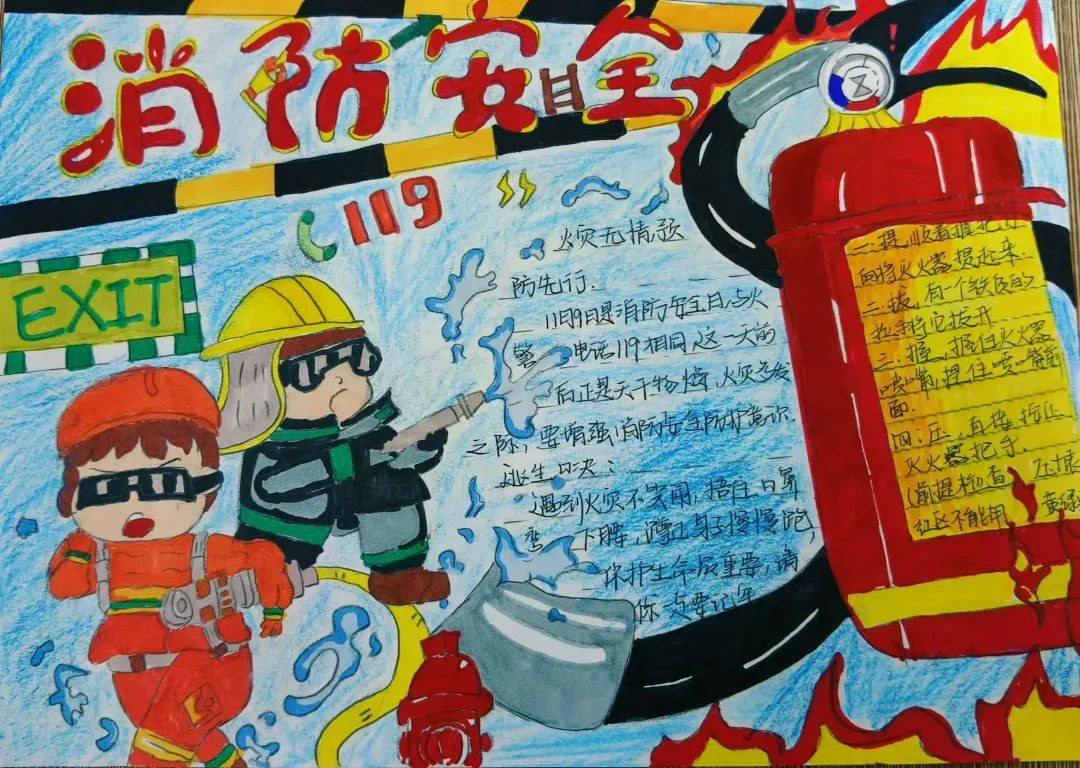 消防安全
119
EXIT
火灾无情预
防先行.
11月9日是消防安全日,与火
警电话119相同,这一天前
后正是天干物燥,火灾多发
之际,要增强消防安全防护意识.
逃生口决:
遇到火灾不慌用,捂住口鼻
弯下腰,蹲上身子慢慢跑,
保护生命最重要,请
你一定要记牢
一:提,
向将灭火器提起来.
二:拔,有一个铁质的
拉手将它拔开
三:握,握住灭火器
喷嘴,捏住喷嘴前
面.
四:压,直接按压
灭火器把手.
(前提标查 压表
红区不能用 黄绿